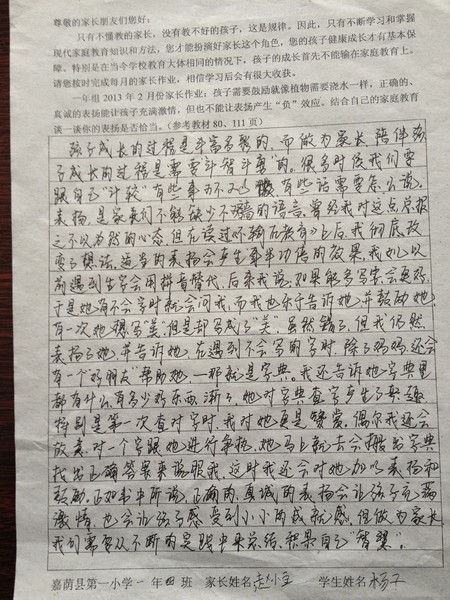 尊敬的家长朋友们您好：
只有不懂教的家长，没有教不好的孩子，这是规律。因此，只有不断学习和掌握
现代家庭教育知识和方法，您才能扮演好家长这个角色，您的孩子健康成长才有基本保
障。特别是在当今学校教育大体相同的情况下，孩子的成长首先不能输在家庭教育上。
请您按时完成每月的家长作业，相信学习后会有很大收获。
一年组 2013 年 2 月份家长作业：孩子需要鼓励就像植物需要浇水一样，正确的、
真诚的表扬能让孩子充满激情，但也不能让表扬产生“负”效应。结合自己的家庭教育
谈一谈你的表扬是否恰当。（参考教材 80、111 页）
孩子成长的过程是丰富多彩的，而做为家长陪伴孩
子成长的过程是需要“斗智斗勇”的。很多时候我们要
跟自己“计较”有些事 有些话需要怎么说。
表扬，是家长们不能缺少不 的语言，曾经我对这点总报
之不以为然的心态，但在读过《 》上后，我彻底改
变了想法，适当的表扬会产生事半功倍的效果，我女儿以
前遇到生字会用拼音替代，后来我说，如果能多写字会更好，
于是她有不会字时就会问我，而我也乐于告诉她，并鼓励她，
有一次她想写“美”但是却写成了“关”，虽然错了，但我仍然
表扬了她，并告诉她，在遇到不会写的字时，除了妈妈，还会
有一个“好朋友”帮助她，那就是字典。我还告诉她字典里
都有什么，有多少好东西，渐渐她对字典查字产生了兴趣，
特别是第一次查对字时，我对她更是赞赏。偶尔我还会
故意对一个字跟她进行争执，她马上就去会搬出字典
找出正确答案来说服我，这时我还会对她加以表扬和
鼓励，正如书中所说，正确的、真诚的表扬会让孩子充满
激情，也会让孩子感受到小小的成就感，但做为家长
我们需要从不断的实践中来总结，积累自己“智慧”。
嘉荫县第一小学一 年 四 班 家长姓名 赵小宝 学生姓名 杨子